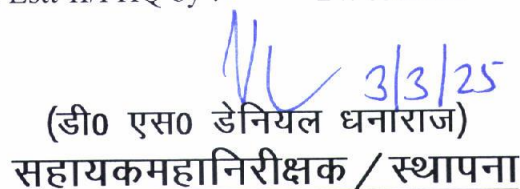 3/3/25
(डी0 एस0 डेनियल धनाराज)
सहायकमहानिरीक्षक / स्थापना